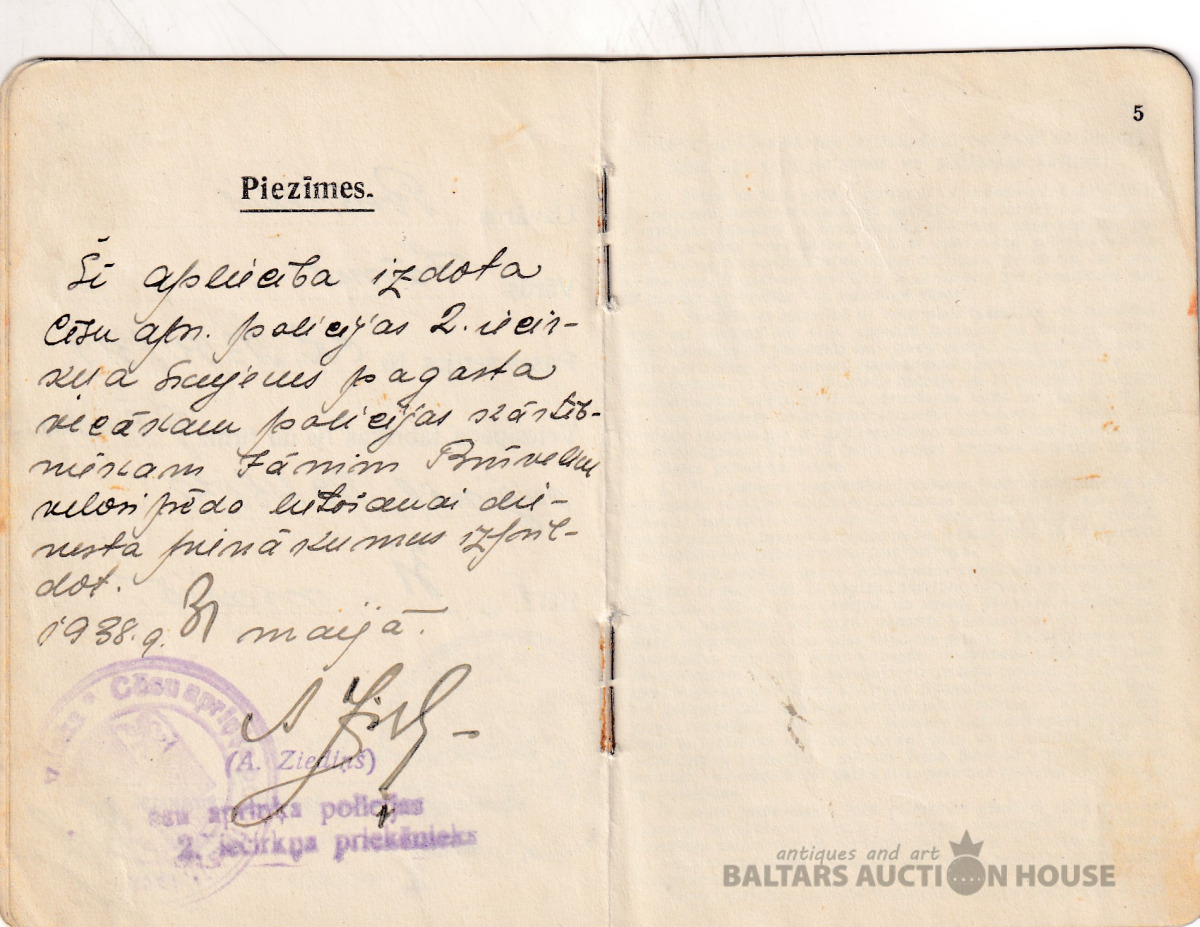 Piezīmes.
Šī apliecība izdota
Cēsu apr. policijas 2. iecir-
kņa pagasta
vecākam policijas kārtīb-
niekam Jānim
velosipēda lietošanai die-
nesta pienākumus izpil-
dot.
1938. g. 31 maijā.
Cēsu apriņķa
(A. Ziediņš)
apriņķa policijas
2. iecirkņa priekšnieks
5
antiques and art
BALTARS AUCTION HOUSE